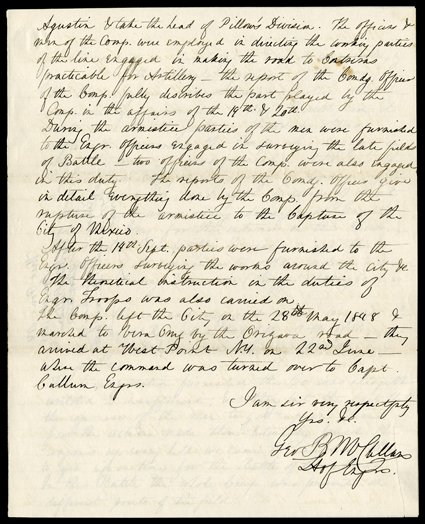 Agustin & take the head of Pillow's Division. The officers &
men of the Comp. were employed in directing the working parties
of the line engaged in making the road to Contreras
practicable for Artillery – the report of the Comdg. Officer
of the Comp. fully describes the part played by the
Comp. in the affairs of the 19th & 20th.
During the armistice parties of the men were furnished
to the Engr. Officers engaged in surveying the late fields
of Battle – two officers of the Comp. were also engaged
in this duty. The reports of the Comdg. Officer give
in detail everything done by the Comp. from the
rupture of the armistice to the Capture of the
City of Mexico.
After the 19th Sept. parties were furnished to the
Engr. Officers surveying the works around the City &c
The theoretical instruction in the duties of
Engr. Troops was also carried on
The Comp. left the City on the 28th May 1848 &
marched to Vera Cruz by the Orizava road – they
arrived at West Point N.Y. on 22nd June –
when the command was turned over to Capt.
Cullum Engrs.
I am sir very respectfully
Yrs. &c.
Geo B McClellan
Lt of Engrs.